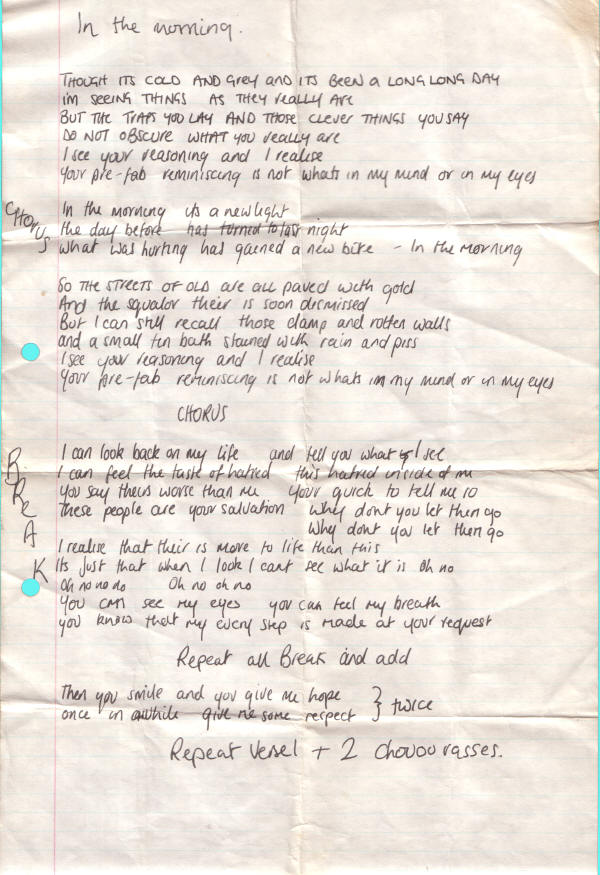 In the morning.
THOUGH ITS COLD AND Grey and ITS BEEN a LONG LONG DAY
im SEEING THINGS AS THEY REALLY ARE
BUT THE TRAPS YOU LAY AND THOSE CLEVER THINGS YOU SAY
DO NOT OBSCURE WHAT YOU really are
I see your reasoning and I realise
Your pre-fab reminiscing is not whats in my mind or in my eyes
CHORUS
In the morning its a new light
the day before has turned to last night
what was hurting has gained a new bite - In the morning
So THE STREETS OF OLD are all paved with gold
And the squalor their is soon dismissed
But I can still recall those damp and rotten walls
and a small tin bath stained with rain and piss
I see your reasoning and I realise
Your pre-fab reminiscing is not whats in my mind or in my eyes
CHORUS
BREAK
I can look back on my life and tell you what I see
I can feel the taste of hatred this hatred inside of me
You say theirs worse than me your quick to tell me so
These people are your salvation Why dont you let them go
Why dont you let them go
I realise that their is more to life than this
Its just that when I look I cant see what it is oh no
Oh no no no Oh no oh no
You can see my eyes you can feel my breath
you know that my every step is made at your request
Repeat all Break and add
Then you smile and you give me hope
once in awhile give me some respect } twice
Repeat Verse1 + 2 chorusses.